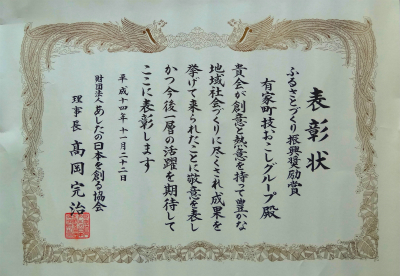 表彰状
ふるさとづくり振興奨励賞
有家町技おこしグループ殿
貴会が創意と熱意を持って豊かな
地域社会づくりに尽くされ成果を
挙げて来られたことに敬意を表し
かつ今後一層の活躍を期待して
ここに表彰します
平成十四年十一月二十二日
財団法人あしたの日本を創る協会
理事長 高岡完治